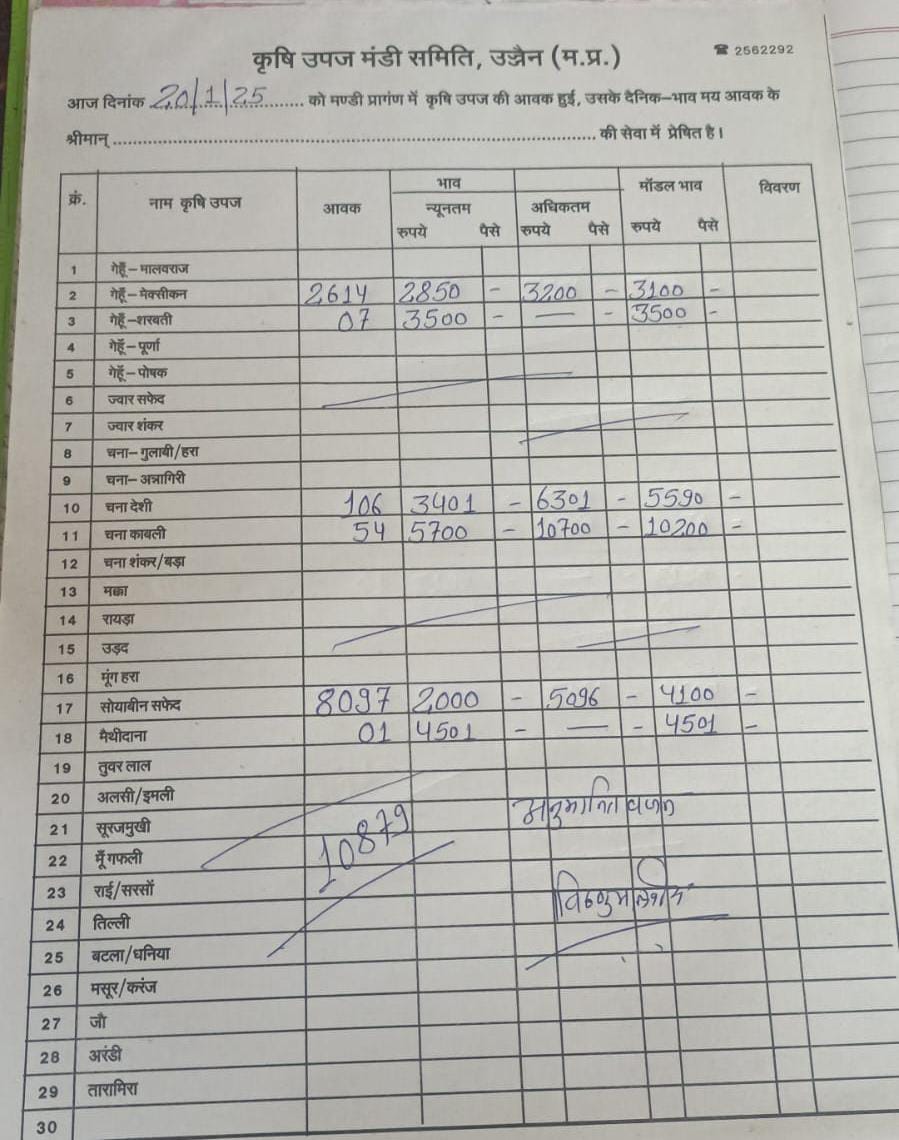 कृषि उपज मंडी समिति, उज्जैन (म.प्र.) ☎ 2562292
आज दिनांक 20/1/25 को मण्डी प्रागंण में कृषि उपज की आवक हुई, उसके दैनिक-भाव मय आवक के
श्रीमान् की सेवा में प्रेषित है।
क्रं. नाम कृषि उपज आवक भाव मॉडल भाव विवरण
न्यूनतम अधिकतम
रुपये पैसे रुपये पैसे रुपये पैसे
1 गेहूँ-मालवराज
2 गेहूँ-मेक्सीकन 2614 2850 - 3200 - 3100 -
3 गेहूँ-शरबती 07 3500 - — - 3500 -
4 गेहूँ-पूर्णा
5 गेहूँ-पोषक
6 ज्वार सफेद
7 ज्वार शंकर
8 चना-गुलाबी/हरा
9 चना-अन्नागिरी
10 चना देशी 106 3401 - 6301 - 5590 -
11 चना काबली 54 5700 - 10700 - 10200 -
12 चना शंकर/बड़ा
13 मक्का
14 रायड़ा
15 उड़द
16 मूंग हरा
17 सोयाबीन सफेद 8097 2000 - 5096 - 4100 -
18 मैथीदाना 01 4501 - — - 4501 -
19 तुवर लाल
20 अलसी/इमली अनुमानित वजन
21 सूरजमुखी 10879
22 मूँगफली
23 राई/सरसों
24 तिल्ली
25 बटला/धनिया
26 मसूर/करंज
27 जौ
28 अरंडी
29 तारामिरा
30